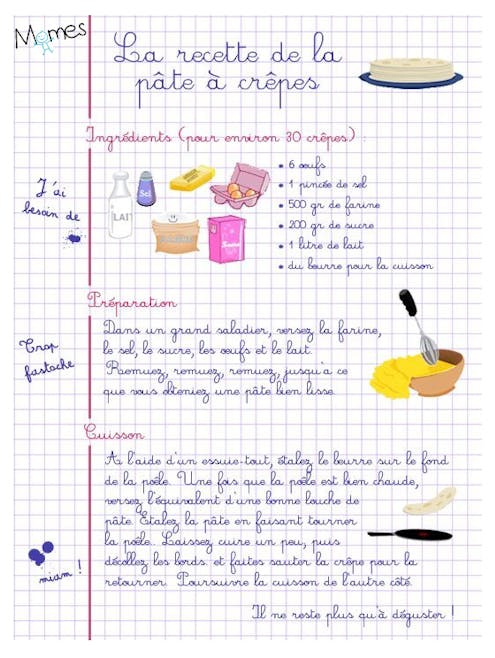 Momes
La recette de la
pâte à crêpes
Ingrédients (pour environ 30 crêpes) :
J'ai
besoin de
LAIT
Sel
Sucre
• 6 œufs
• 1 pincée de sel
• 500 gr de farine
• 200 gr de sucre
• 1 litre de lait
• du beurre pour la cuisson
Préparation
Trop
fastoche
Dans un grand saladier, versez la farine,
le sel, le sucre, les œufs et le lait.
Raemuez, remuez, remuez, jusqu'a ce
que vous obteniez une pâte bien lisse.
Cuisson
A l'aide d'un essuie-tout, étalez le beurre sur le fond
de la poêle. Une fois que la poêle est bien chaude,
versez l'équivalent d'une bonne louche de
pâte. Etalez la pâte en faisant tourner
la poêle. Laissez cuire un peu, puis
décollez les bords. et faites sauter la crêpe pour la
retourner. Poursuivre la cuisson de l'autre côté.
miam !
Il ne reste plus qu'à déguster !